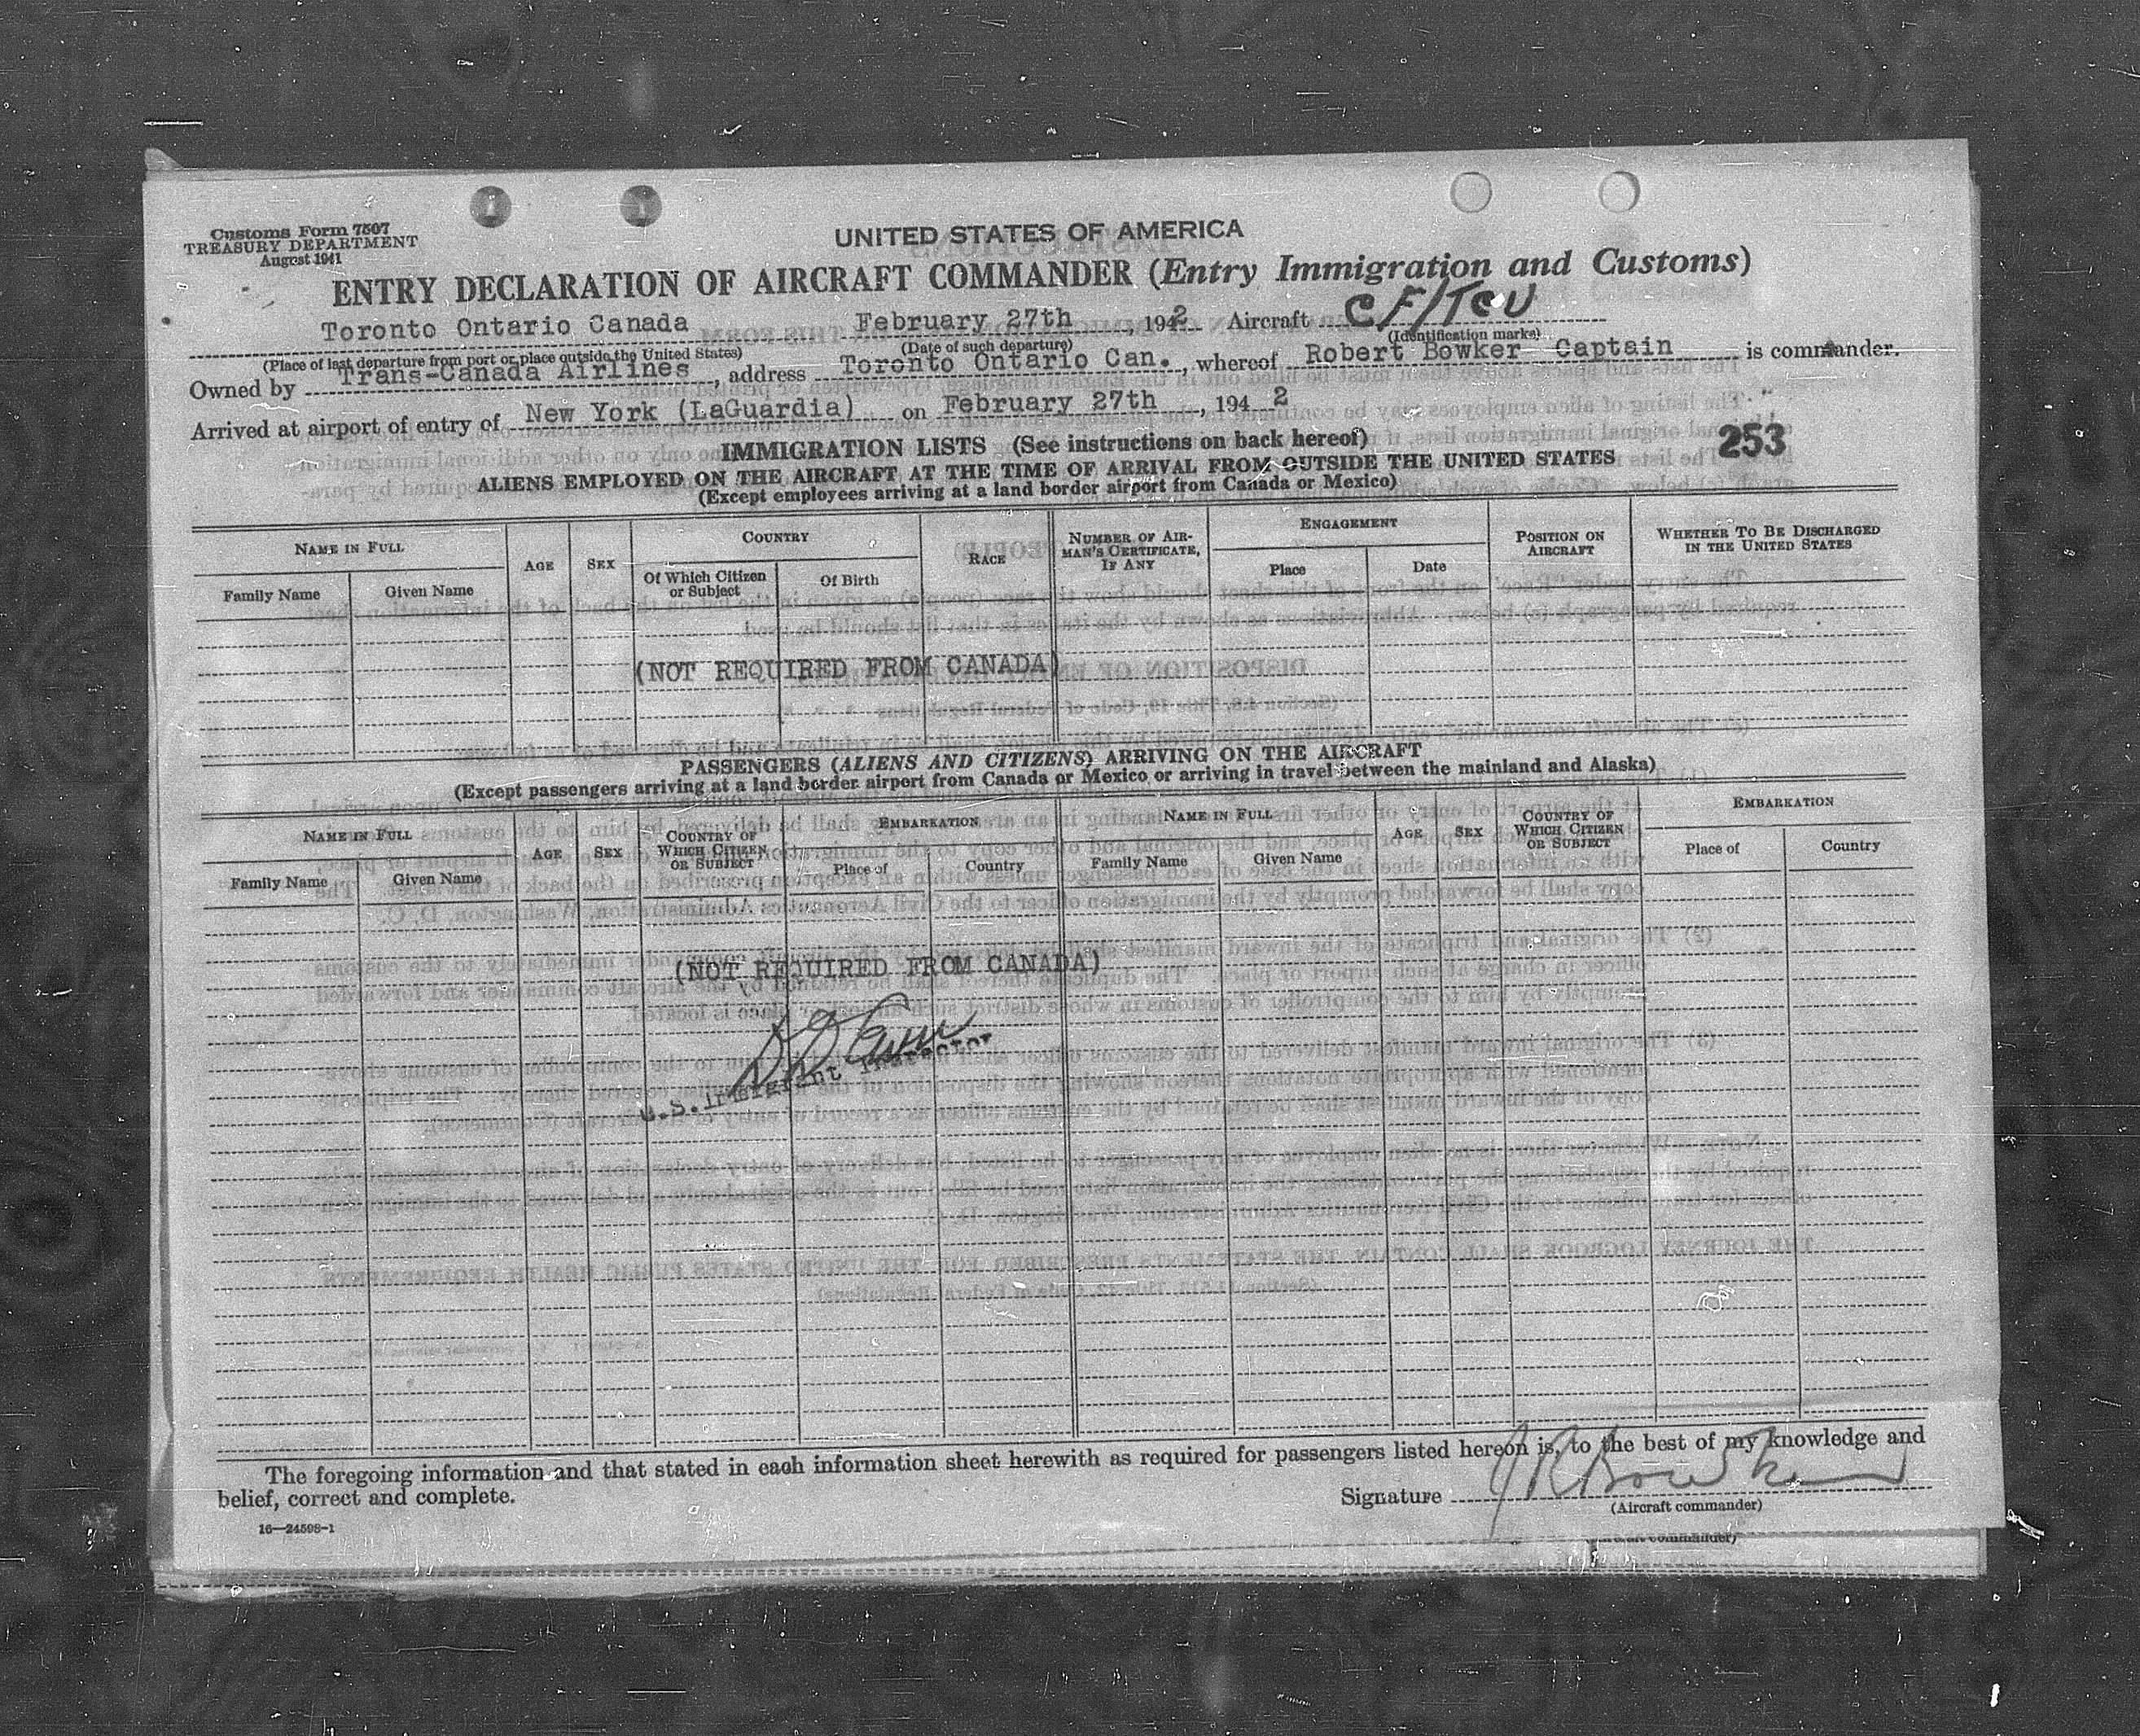 Customs Form 7507
TREASURY DEPARTMENT
August 1941
UNITED STATES OF AMERICA
ENTRY DECLARATION OF AIRCRAFT COMMANDER (Entry Immigration and Customs)
Toronto Ontario Canada February 27th, 1942 Aircraft CF/TCU
(Place of last departure from port or place outside the United States) (Date of such departure) (Identification marks)
Owned by Trans-Canada Airlines, address Toronto Ontario Can., whereof Robert Bowker Captain is commander.
Arrived at airport of entry of New York (LaGuardia) on February 27th, 194 2
IMMIGRATION LISTS (See instructions on back hereof)
253
ALIENS EMPLOYED ON THE AIRCRAFT AT THE TIME OF ARRIVAL FROM OUTSIDE THE UNITED STATES
(Except employees arriving at a land border airport from Canada or Mexico)
NAME IN FULL AGE SEX COUNTRY RACE NUMBER OF AIRMAN'S CERTIFICATE, IF ANY ENGAGEMENT POSITION ON AIRCRAFT WHETHER TO BE DISCHARGED IN THE UNITED STATES
Family Name Given Name Of Which Citizen or Subject Of Birth Place Date
(NOT REQUIRED FROM CANADA)
PASSENGERS (ALIENS AND CITIZENS) ARRIVING ON THE AIRCRAFT
(Except passengers arriving at a land border airport from Canada or Mexico or arriving in travel between the mainland and Alaska)
NAME IN FULL AGE SEX COUNTRY OF WHICH CITIZEN OR SUBJECT EMBARKATION NAME IN FULL AGE SEX COUNTRY OF WHICH CITIZEN OR SUBJECT EMBARKATION
Family Name Given Name Place of Country Family Name Given Name Place of Country
(NOT REQUIRED FROM CANADA)
U.S. Immigrant Inspector
The foregoing information and that stated in each information sheet herewith as required for passengers listed hereon is, to the best of my knowledge and
belief, correct and complete.
Signature JRBowker
(Aircraft commander)
16—24598-1